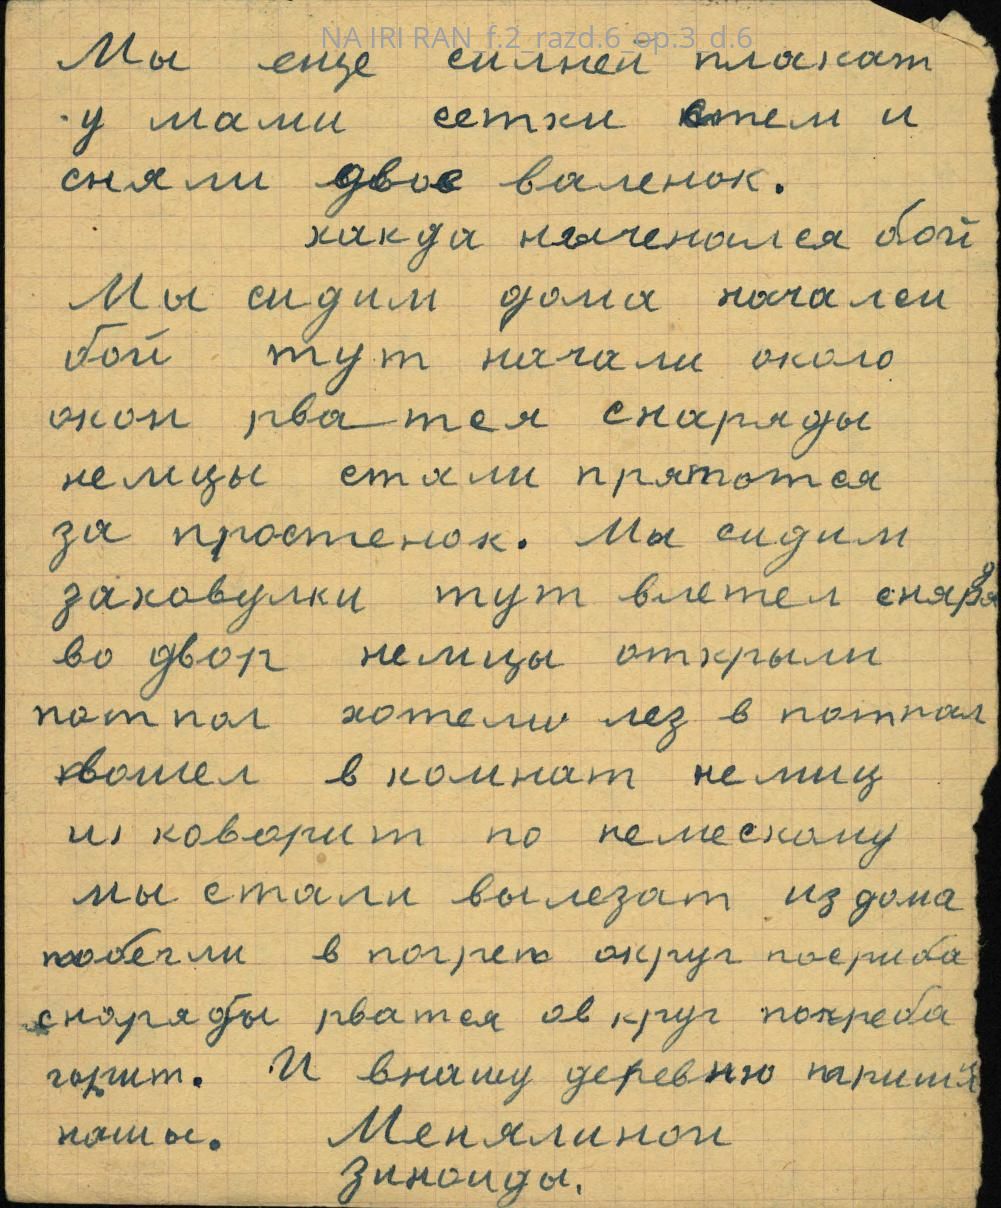 NA IRI RAN_f.2_razd.6_op.3_d.6
Мы еще силней плакат
у мами сетки стем и
сняли двое валенок.
какда наченался бой
Мы сидим дома начался
бой тут начали около
окон рватся снаряды
немцы стали прятотся
за простенок. Мы сидим
заковулки тут влетел снаряд
во двор немцы открыли
потпол хотели лез в потпол
вошел в комнат немиц
и коворит по немескому
мы стали вылезат из дома
побегли в погреп округ погриба
снаряды рватся овкруг погреба
горит. И внашу деревню пришли
нашы. Менялиной
Зиноиды.